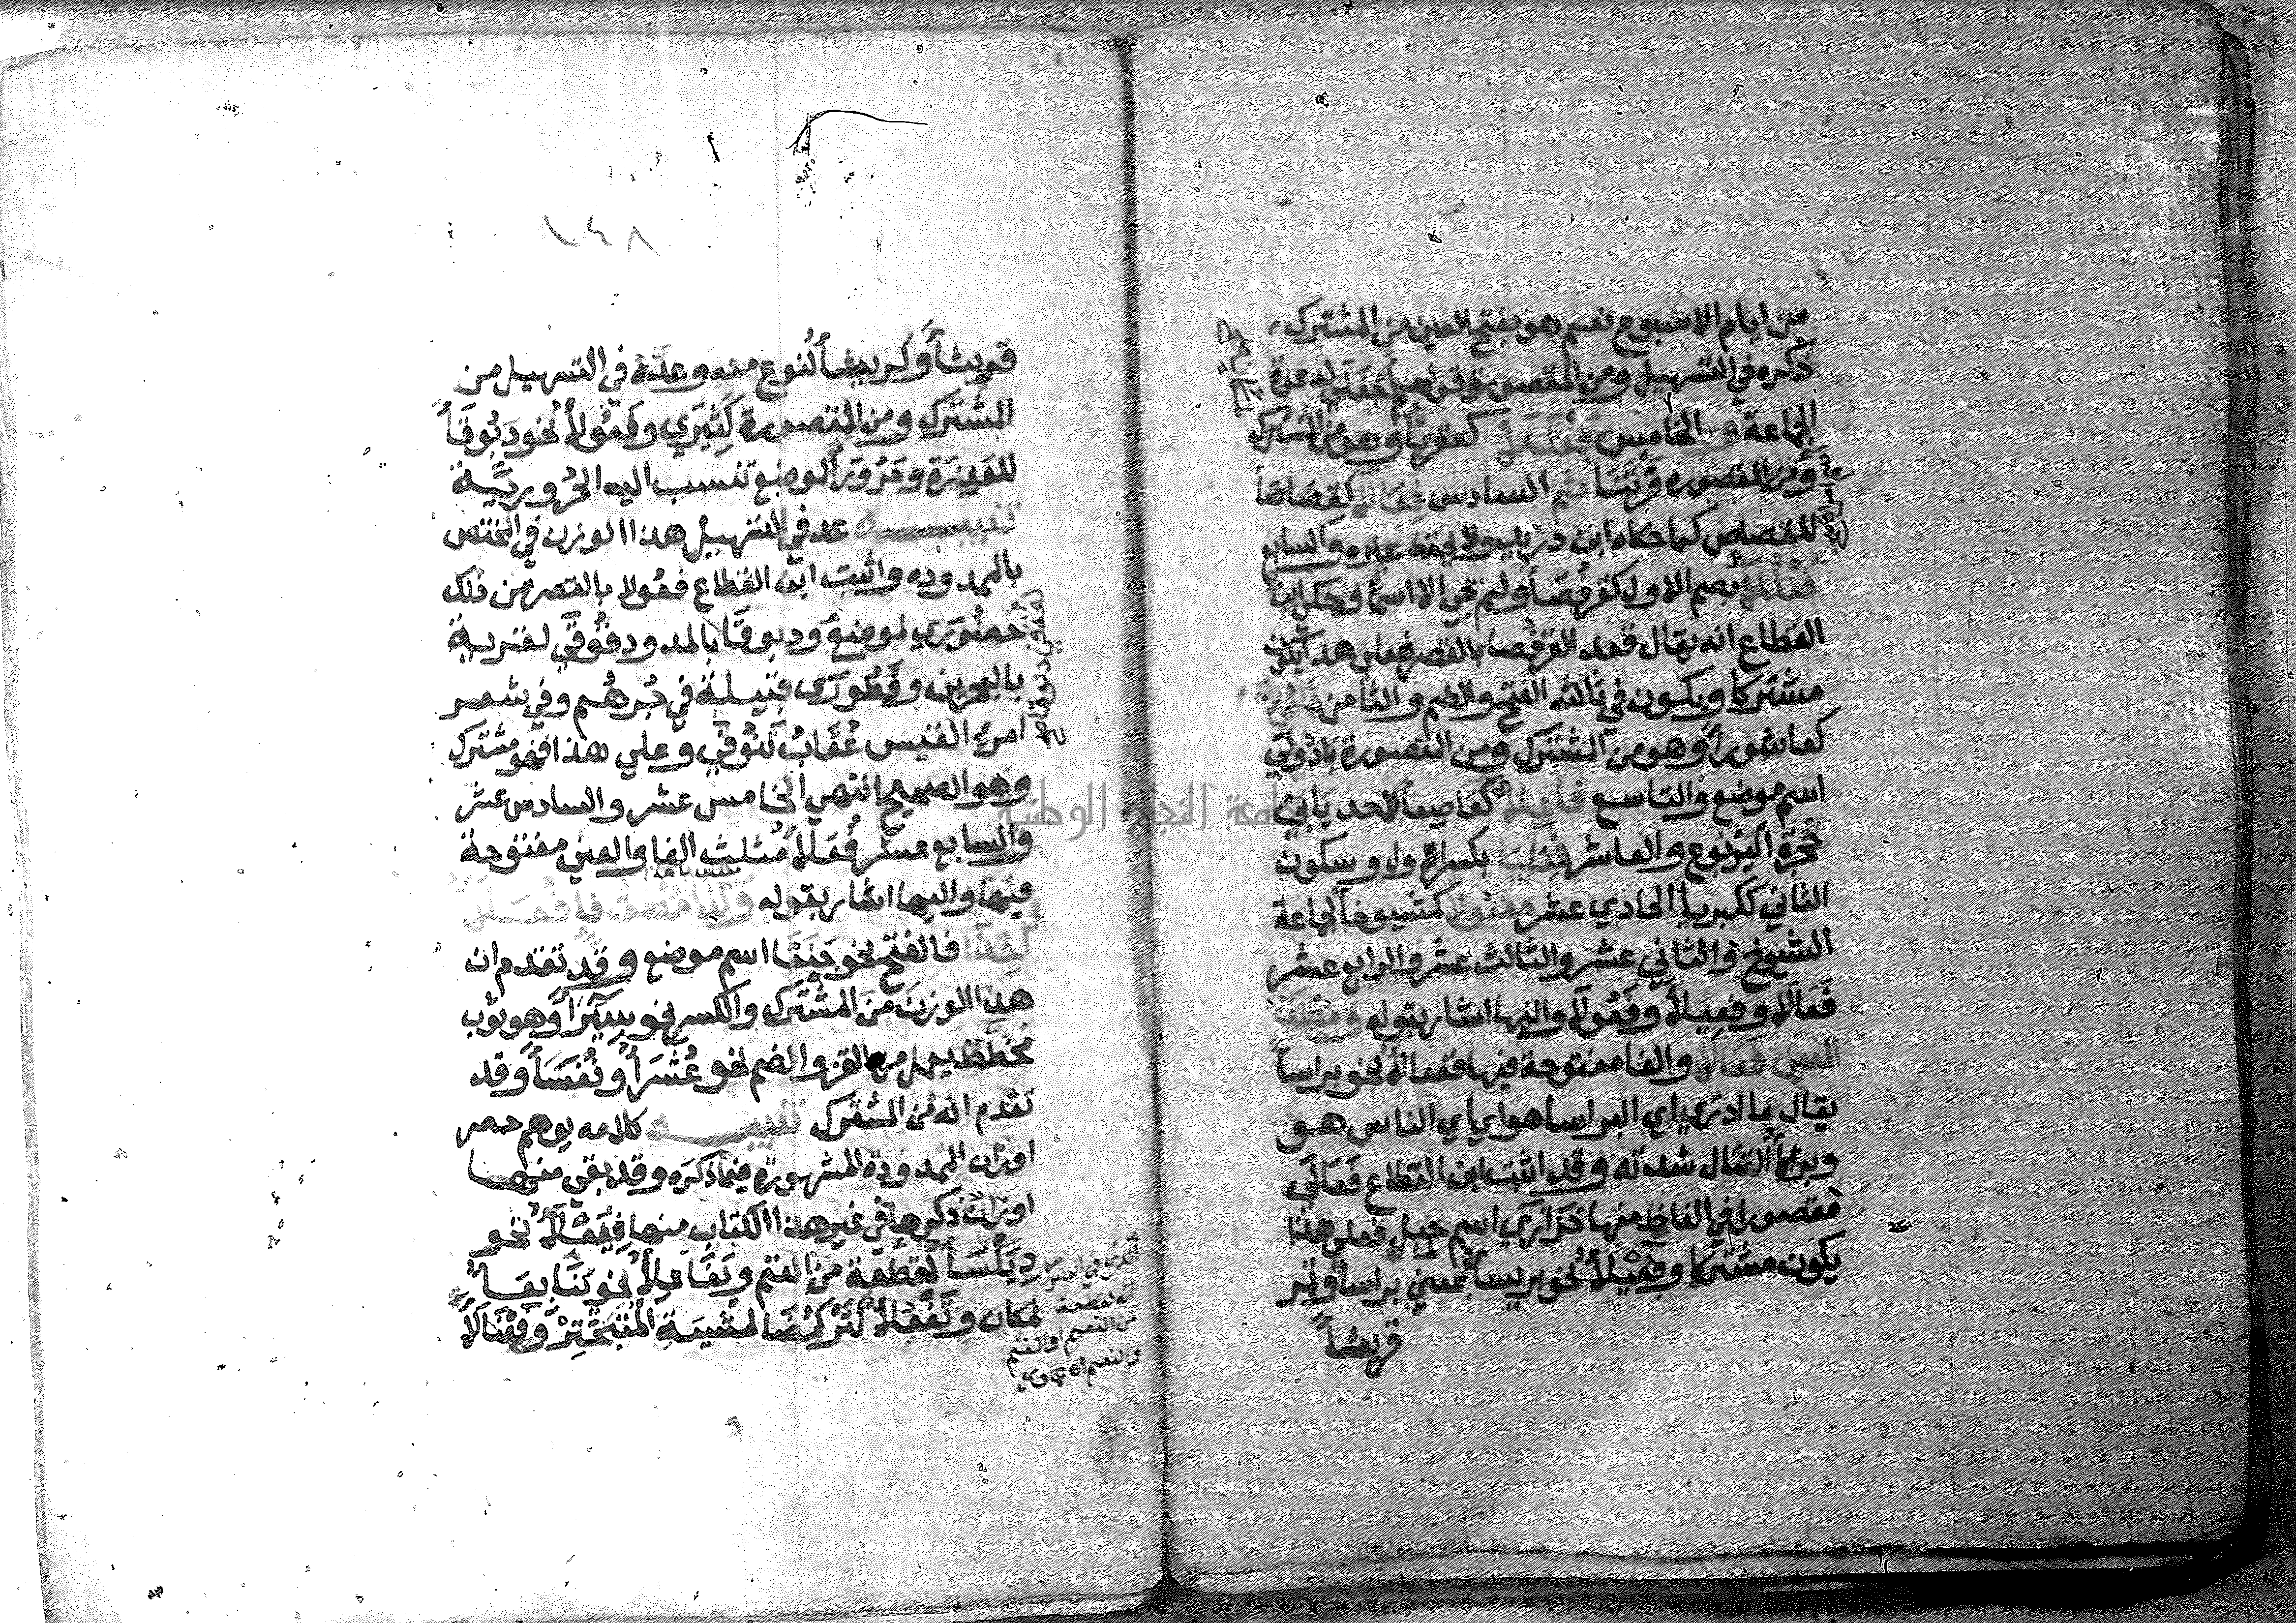 من ايام الاسبوع نعم هو بفتح العين من المشترك
ذكره في التسهيل ومن المقصورة قولهم اجفلى لدعوة
الجماعة والخامس فَعْلَلَاء كعقرباء وهو من المشترك
ومن المقصورة فَرْتَنَا ثم السادس فِعَالَاء كقِصَاصاء
للقصاص كما حكاه ابن دريد ولا يحفظ غيره والسابع
فُعْلُلَاء بضم الاول كقُرفُصَاء ولم يجي الا اسما وحكي ابن
القطاع انه يقال قعد القرفصا بالقصر فعلى هذا يكون
مشتركا ويكون في ثالثه الفتح والضم والثامن فَاعُولَاء
كعاشوراء وهو من المشترك ومن المقصورة بَادُولَي
اسم موضع والتاسع فاعِلاء كقاصعاء لاحد بَابَيْ
جُحْرَةِ اليَرْبُوع والعاشر فِعْلِيَا بكسر الاول وسكون
الثاني ككبرياء الحادي عشر مفعولا كمشيوخاء لجماعة
الشيوخ والثاني عشر والثالث عشر والرابع عشر
فَعَالَاء وفَعِيلَاء وفَعُولَاء واليها اشار بقوله وَمُطْلَقَ
العين فَعَالَا والفا مفتوحة فيها ففعالاء نحو براساء
يقال ما ادري اي البراسا هو اي اي الناس هو
وبراكاء القتال شدته وقد اثبت ابن القطاع فَعَالَى
مقصورا في الفاظ منها خَزَازَي اسم جبل فعلى هذا
يكون مشتركا وفَعِيْلَاء نحو بريساء بمعني براساء وتمر
قريثاء
١٤٨
قريثاء وكريثاء لنوع منه وعدّه في التسهيل من
المشترك ومن المقصورة كَثِيرَي وفَعُولَاء نحو دَبُوقَاء
للعَذِرَة وحَرُورَاء لموضع تنسب اليه الحَرُورِيَّة
تنبيه عد في التسهيل هذا الوزن في المختص
بالممدوده واثبت ابن القطاع فعُولا بالقصر من ذلك
حَضُورَي لموضع ودبوقا بالمد ودقوقي لقرية
بالبحرين وقَطُورَي قبيلة في جُرهُم وفي شعر
امرئ القيس عُقَابُ تَنُوفَى وعلي هذا فهو مشترك
وهو الصحيح انتهي الخامس عشر والسادس عشر
والسابع عشر فُعَلَاء مُثَلث الفا والعين مفتوحة
فيها واليها اشار بقوله وكذا مُطلَقَ فاء فعَلَاءُ
اُخِذَا فالفتح نحو جَنَفَا اسم موضع وقد تقدم ان
هذا الوزن من المشترك والكسر نحو سِيَرَاء وهو ثوب
مُخَطَّط يعمل من القز والضم نحو عُشَرَاء ونُفَسَاء وقد
تقدم انه من المشترك تنبيه كلامه يوهم حصر
اوزان الممدودة المشهورة فيما ذكره وقد بقي منها
اوزان ذكرها في غير هذا الكتاب منها فِيْعَلَاء نحو
دِيْكَسَاء لقطعة من الغنم ويَفَاعِلاء نحو يَنَابِعَاء
لمكان وتَفْعُلَاء كَتَرْكُضَا لمشية المُتَبَخْتِر وفَعْنَالَاء
الذي في القاموس
انه لقطعة
من النعم او الغنم